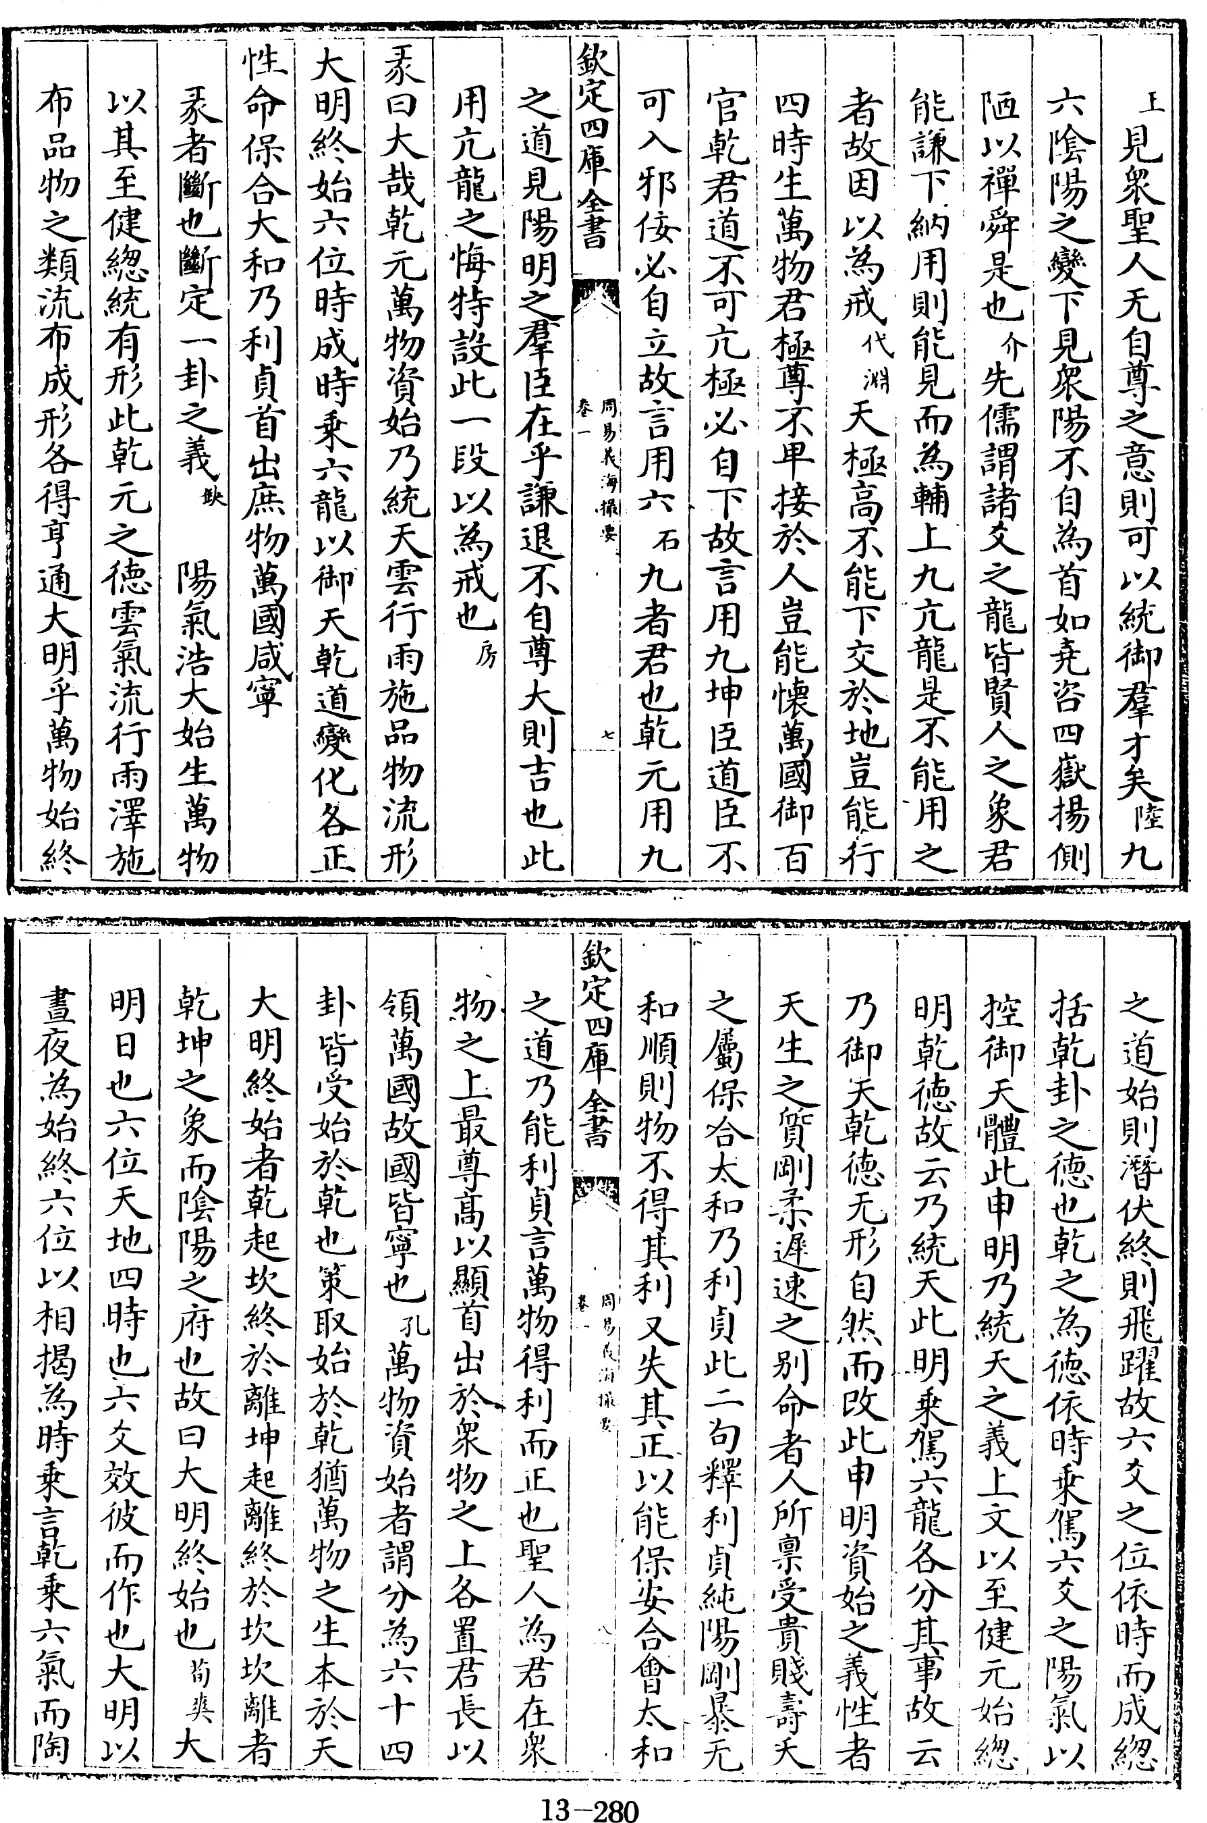 王見衆聖人无自尊之意則可以統御羣才矣陸九
六隂陽之變下見衆陽不自為首如堯咨四嶽揚側
陋以禪舜是也介先儒謂諸爻之龍皆賢人之象君
能謙下納用則能見而為輔上九亢龍是不能用之
者故因以為戒代淵天極高不能下交於地豈能行
四時生萬物君極尊不卑接於人豈能懷萬國御百
官乾君道不可亢極必自下故言用九坤臣道臣不
可入邪佞必自立故言用六石九者君也乾元用九
欽定四庫全書
周易義海撮要
卷一
七
之道見陽明之羣臣在乎謙退不自尊大則吉也此
用亢龍之悔特設此一段以為戒也房
彖曰大哉乾元萬物資始乃統天雲行雨施品物流形
大明終始六位時成時乘六龍以御天乾道變化各正
性命保合大和乃利貞首出庶物萬國咸寧
彖者斷也斷定一卦之義缺 陽氣浩大始生萬物
以其至健總統有形此乾元之徳雲氣流行雨澤施
布品物之類流布成形各得亨通大明乎萬物始終
之道始則潛伏終則飛躍故六爻之位依時而成總
括乾卦之徳也乾之為徳依時乘駕六爻之陽氣以
控御天體此申明乃統天之義上文以至健元始總
明乾徳故云乃統天此明乘駕六龍各分其事故云
乃御天乾徳无形自然而改此申明資始之義性者
天生之質剛柔遲速之别命者人所禀受貴賤壽夭
之屬保合太和乃利貞此二句釋利貞純陽剛暴无
和順則物不得其利又失其正以能保安合㑹太和
欽定四庫全書
周易義海撮要
卷一
八
之道乃能利貞言萬物得利而正也聖人為君在衆
物之上最尊髙以顯首出於衆物之上各置君長以
領萬國故國皆寧也孔萬物資始者謂分為六十四
卦皆受始於乾也策取始於乾猶萬物之生本於天
大明終始者乾起坎終於離坤起離終於坎坎離者
乾坤之象而隂陽之府也故曰大明終始也荀爽大
明日也六位天地四時也六爻效彼而作也大明以
晝夜為始終六位以相揭為時乘言乾乘六氣而陶
13-280